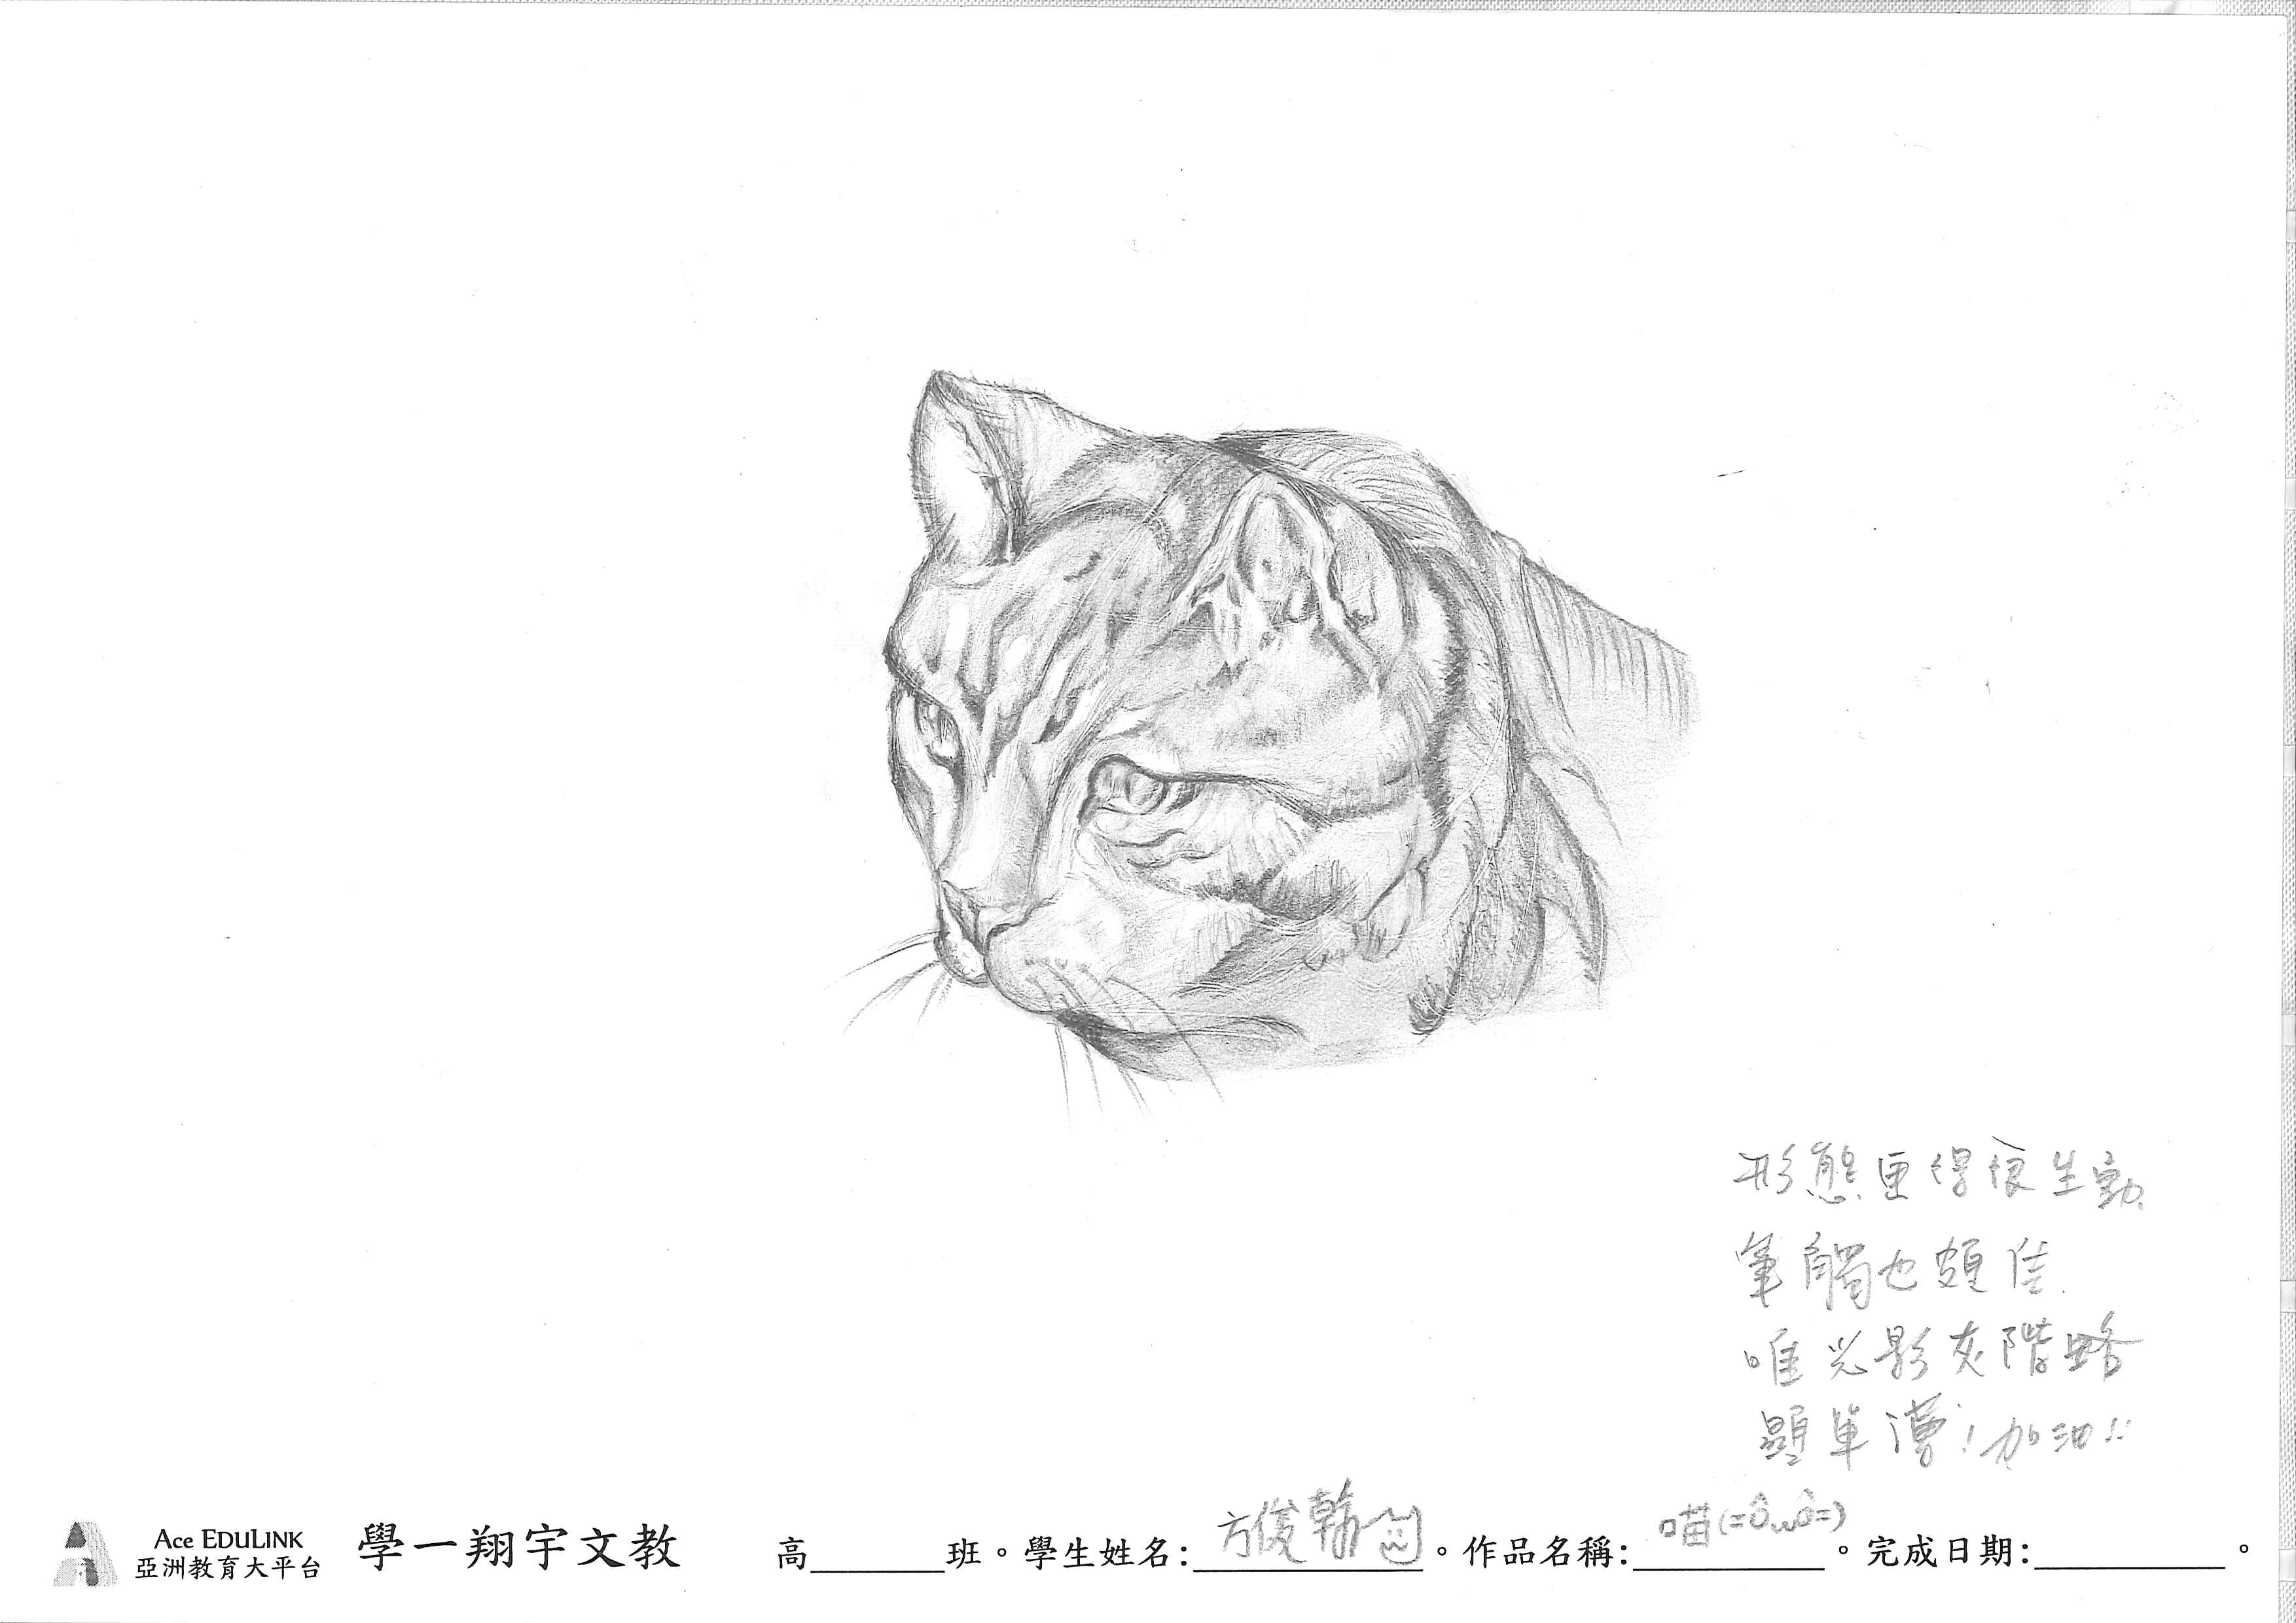 形態画得很生動
筆觸也頗佳.
唯光影灰階略
顯單薄!加油!!
ACE EDULINK
亞洲教育大平台
學一翔宇文教
高______班。學生姓名:方俊翰。作品名稱:喵(=ô ω ô=)。完成日期:______。